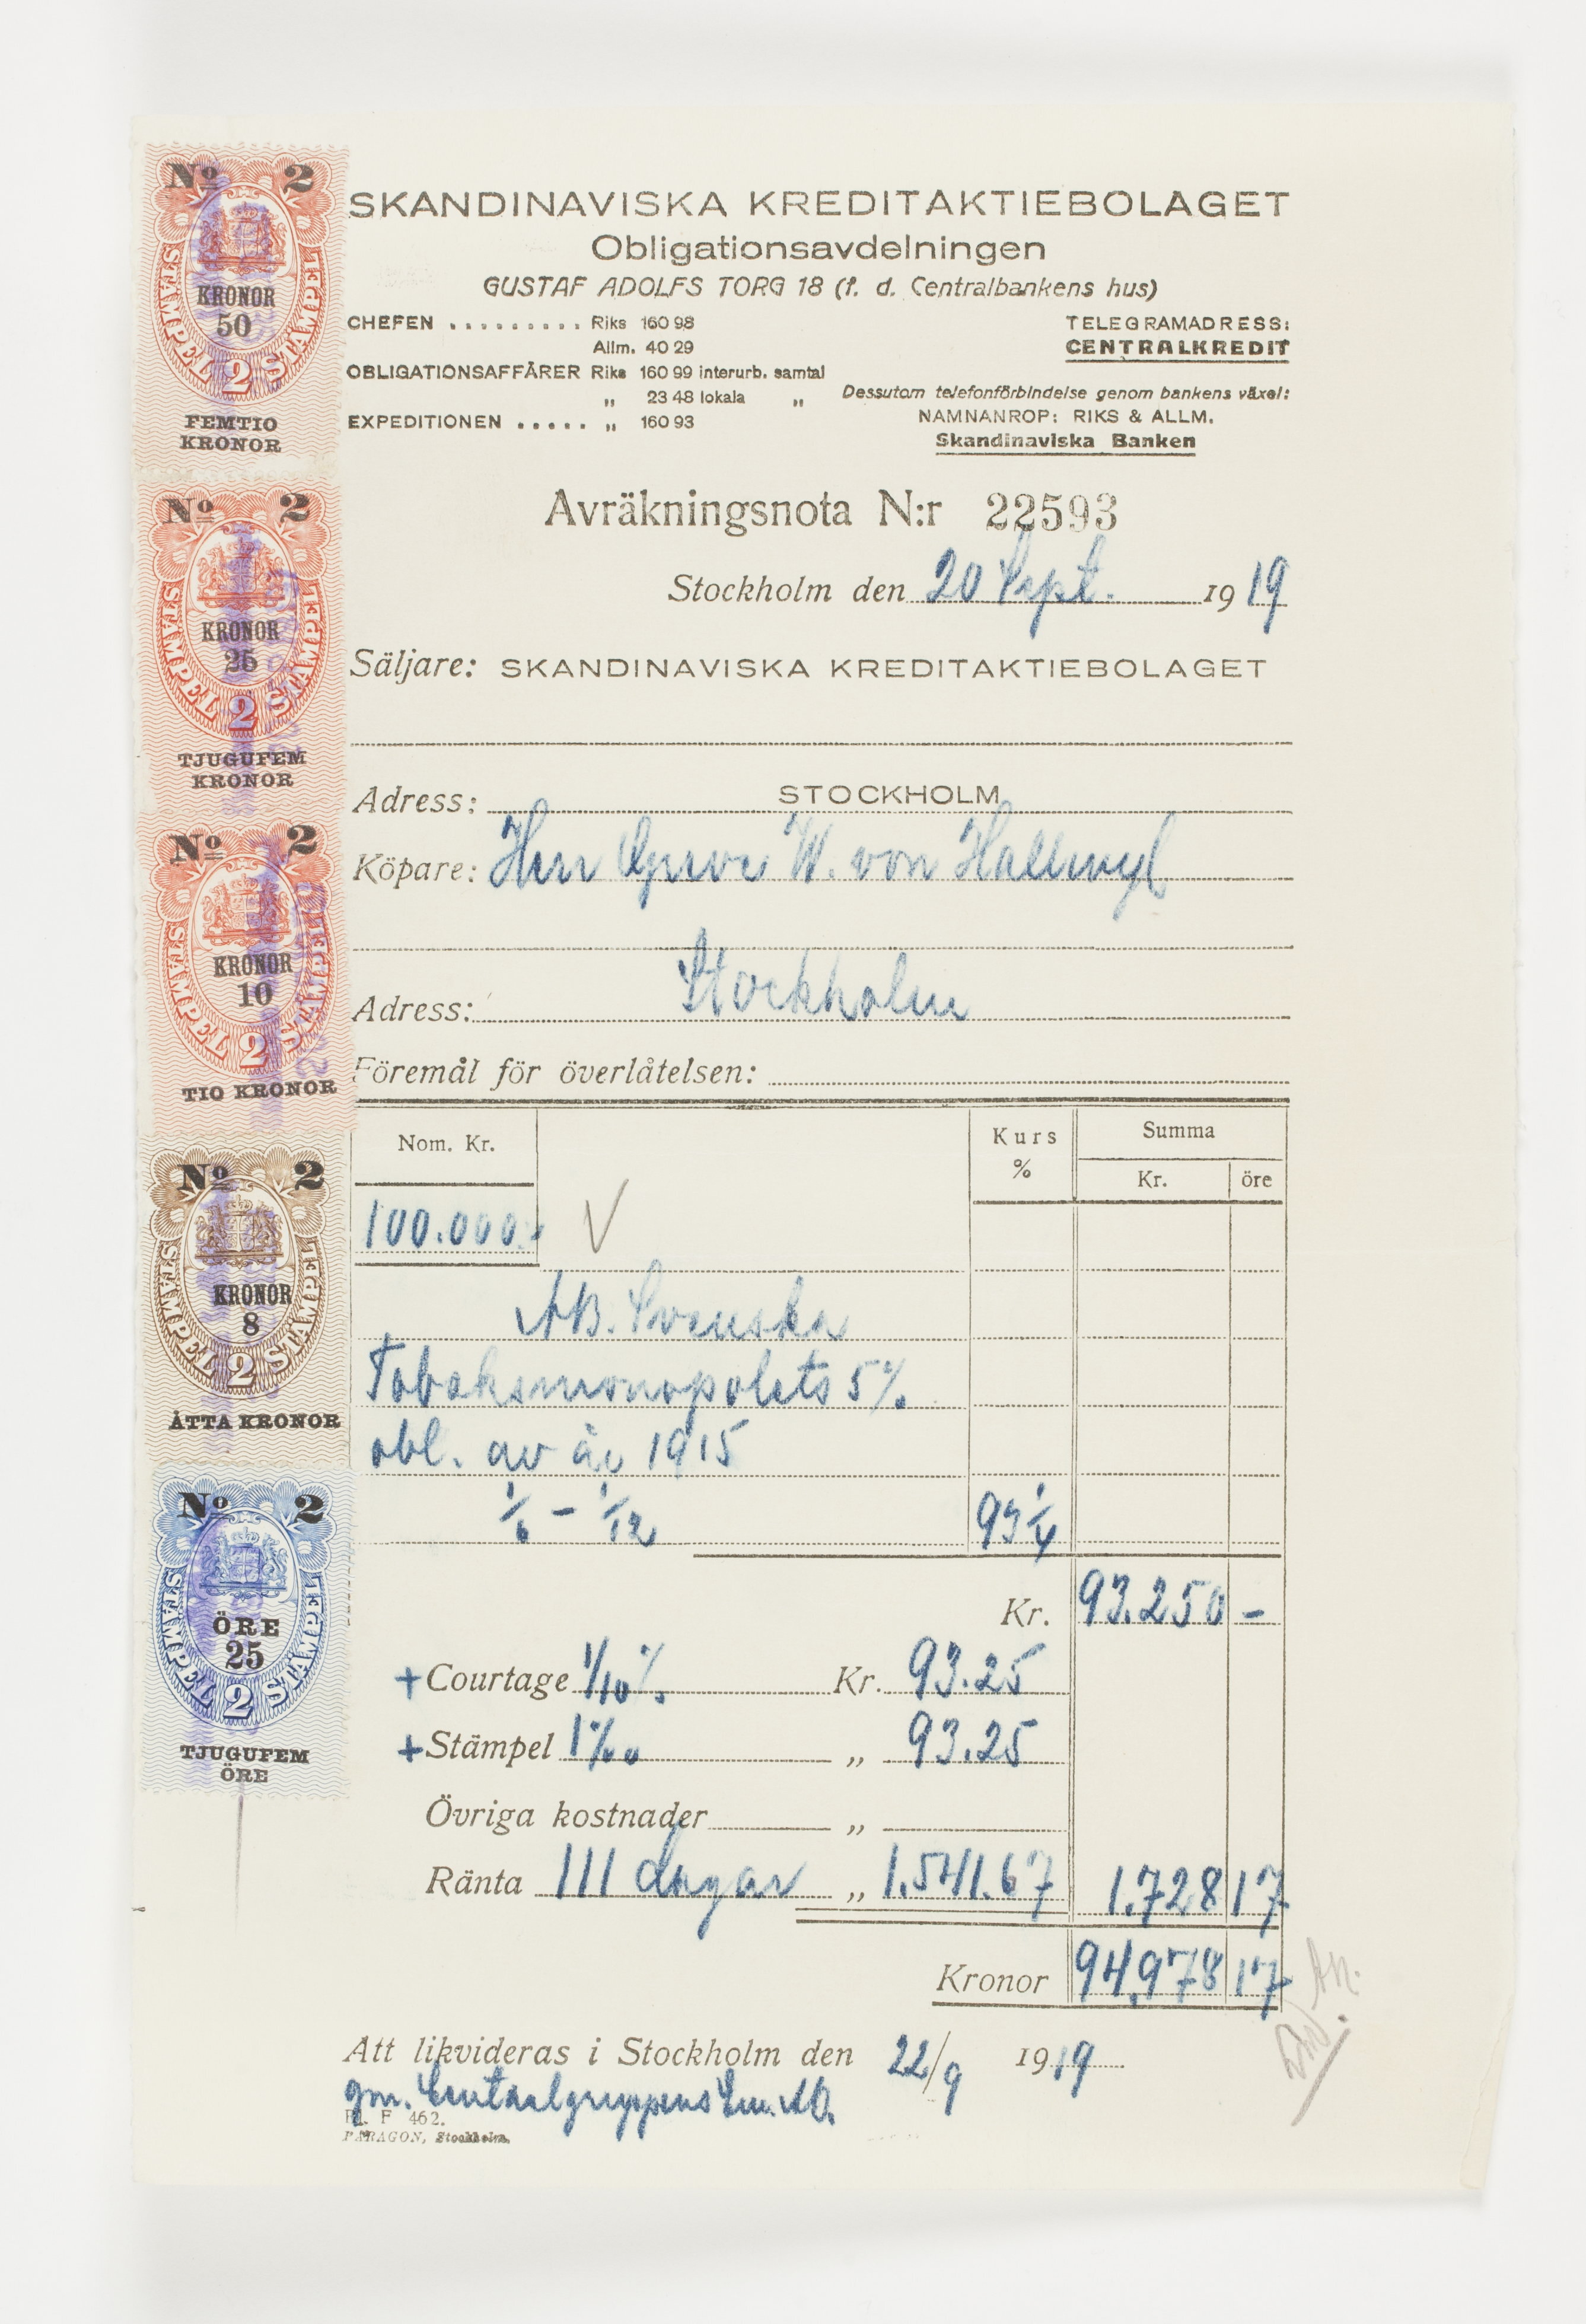 SKANDINAVISKA KREDITAKTIEBOLAGET
Obligationsavdelningen
GUSTAF ADOLFS TORG 18 (f. d. Centralbankens hus)
CHEFEN ......... Riks 160 98
Allm. 40 29
OBLIGATIONSAFFÄRER Riks 160 99 interurb. samtal
„ 23 48 lokala „
EXPEDITIONEN ..... „ 160 93
TELEGRAMADRESS:
CENTRALKREDIT
Dessutom telefonförbindelse genom bankens växel:
NAMNANROP: RIKS & ALLM.
Skandinaviska Banken
Avräkningsnota N:r 22593
Stockholm den 20 Sept. 1919
Säljare: SKANDINAVISKA KREDITAKTIEBOLAGET
Adress: STOCKHOLM
Köpare: Herr Greve W. von Hallwyl
Stockholm
Adress:
Föremål för överlåtelsen:
Nom. Kr. Kurs % Summa
Kr. öre
100.000:-
AB. Svenska
Tobaksmonopolets 5%
obl. av år 1915
1/6 - 1/12 93 1/4
Kr. 93.250 -
+ Courtage 1/10 % Kr. 93.25
+ Stämpel 1‰ „ 93.25
Övriga kostnader „
Ränta 111 dagar „ 1.541.67 1.728 17
Kronor 94,978 17
Att likvideras i Stockholm den 22/9 1919
gm. Centralgruppens Em. AB.
Bl. F 462.
PARAGON, Stockholm.
No 2
KRONOR
50
STÄMPEL 2 STÄMPEL
FEMTIO
KRONOR
No 2
KRONOR
25
STÄMPEL 2 STÄMPEL
TJUGUFEM
KRONOR
No 2
KRONOR
10
STÄMPEL 2 STÄMPEL
TIO KRONOR
No 2
KRONOR
8
STÄMPEL 2 STÄMPEL
ÅTTA KRONOR
No 2
ÖRE
25
STÄMPEL 2 STÄMPEL
TJUGUFEM
ÖRE